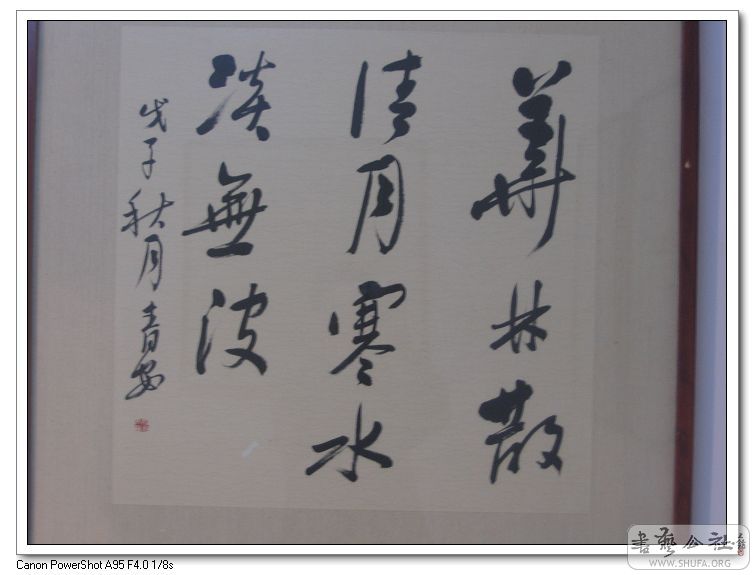 華林散
清月寒水
淡無波
戊子秋月青安
書藝公社
WWW.SHUFA.ORG
Canon PowerShot A95 F4.0 1/8s